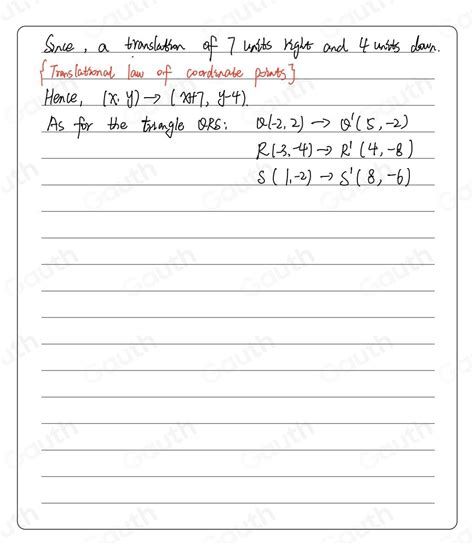 Since, a translation of 7 units right and 4 units down.
{Translational law of coordinate points}
Hence, (x, y) → (x+7, y-4).
As for the triangle QRS: Q(-2, 2) → Q'(5, -2)
R(-3, -4) → R'(4, -8)
S(1, -2) → S'(8, -6)
Gauth